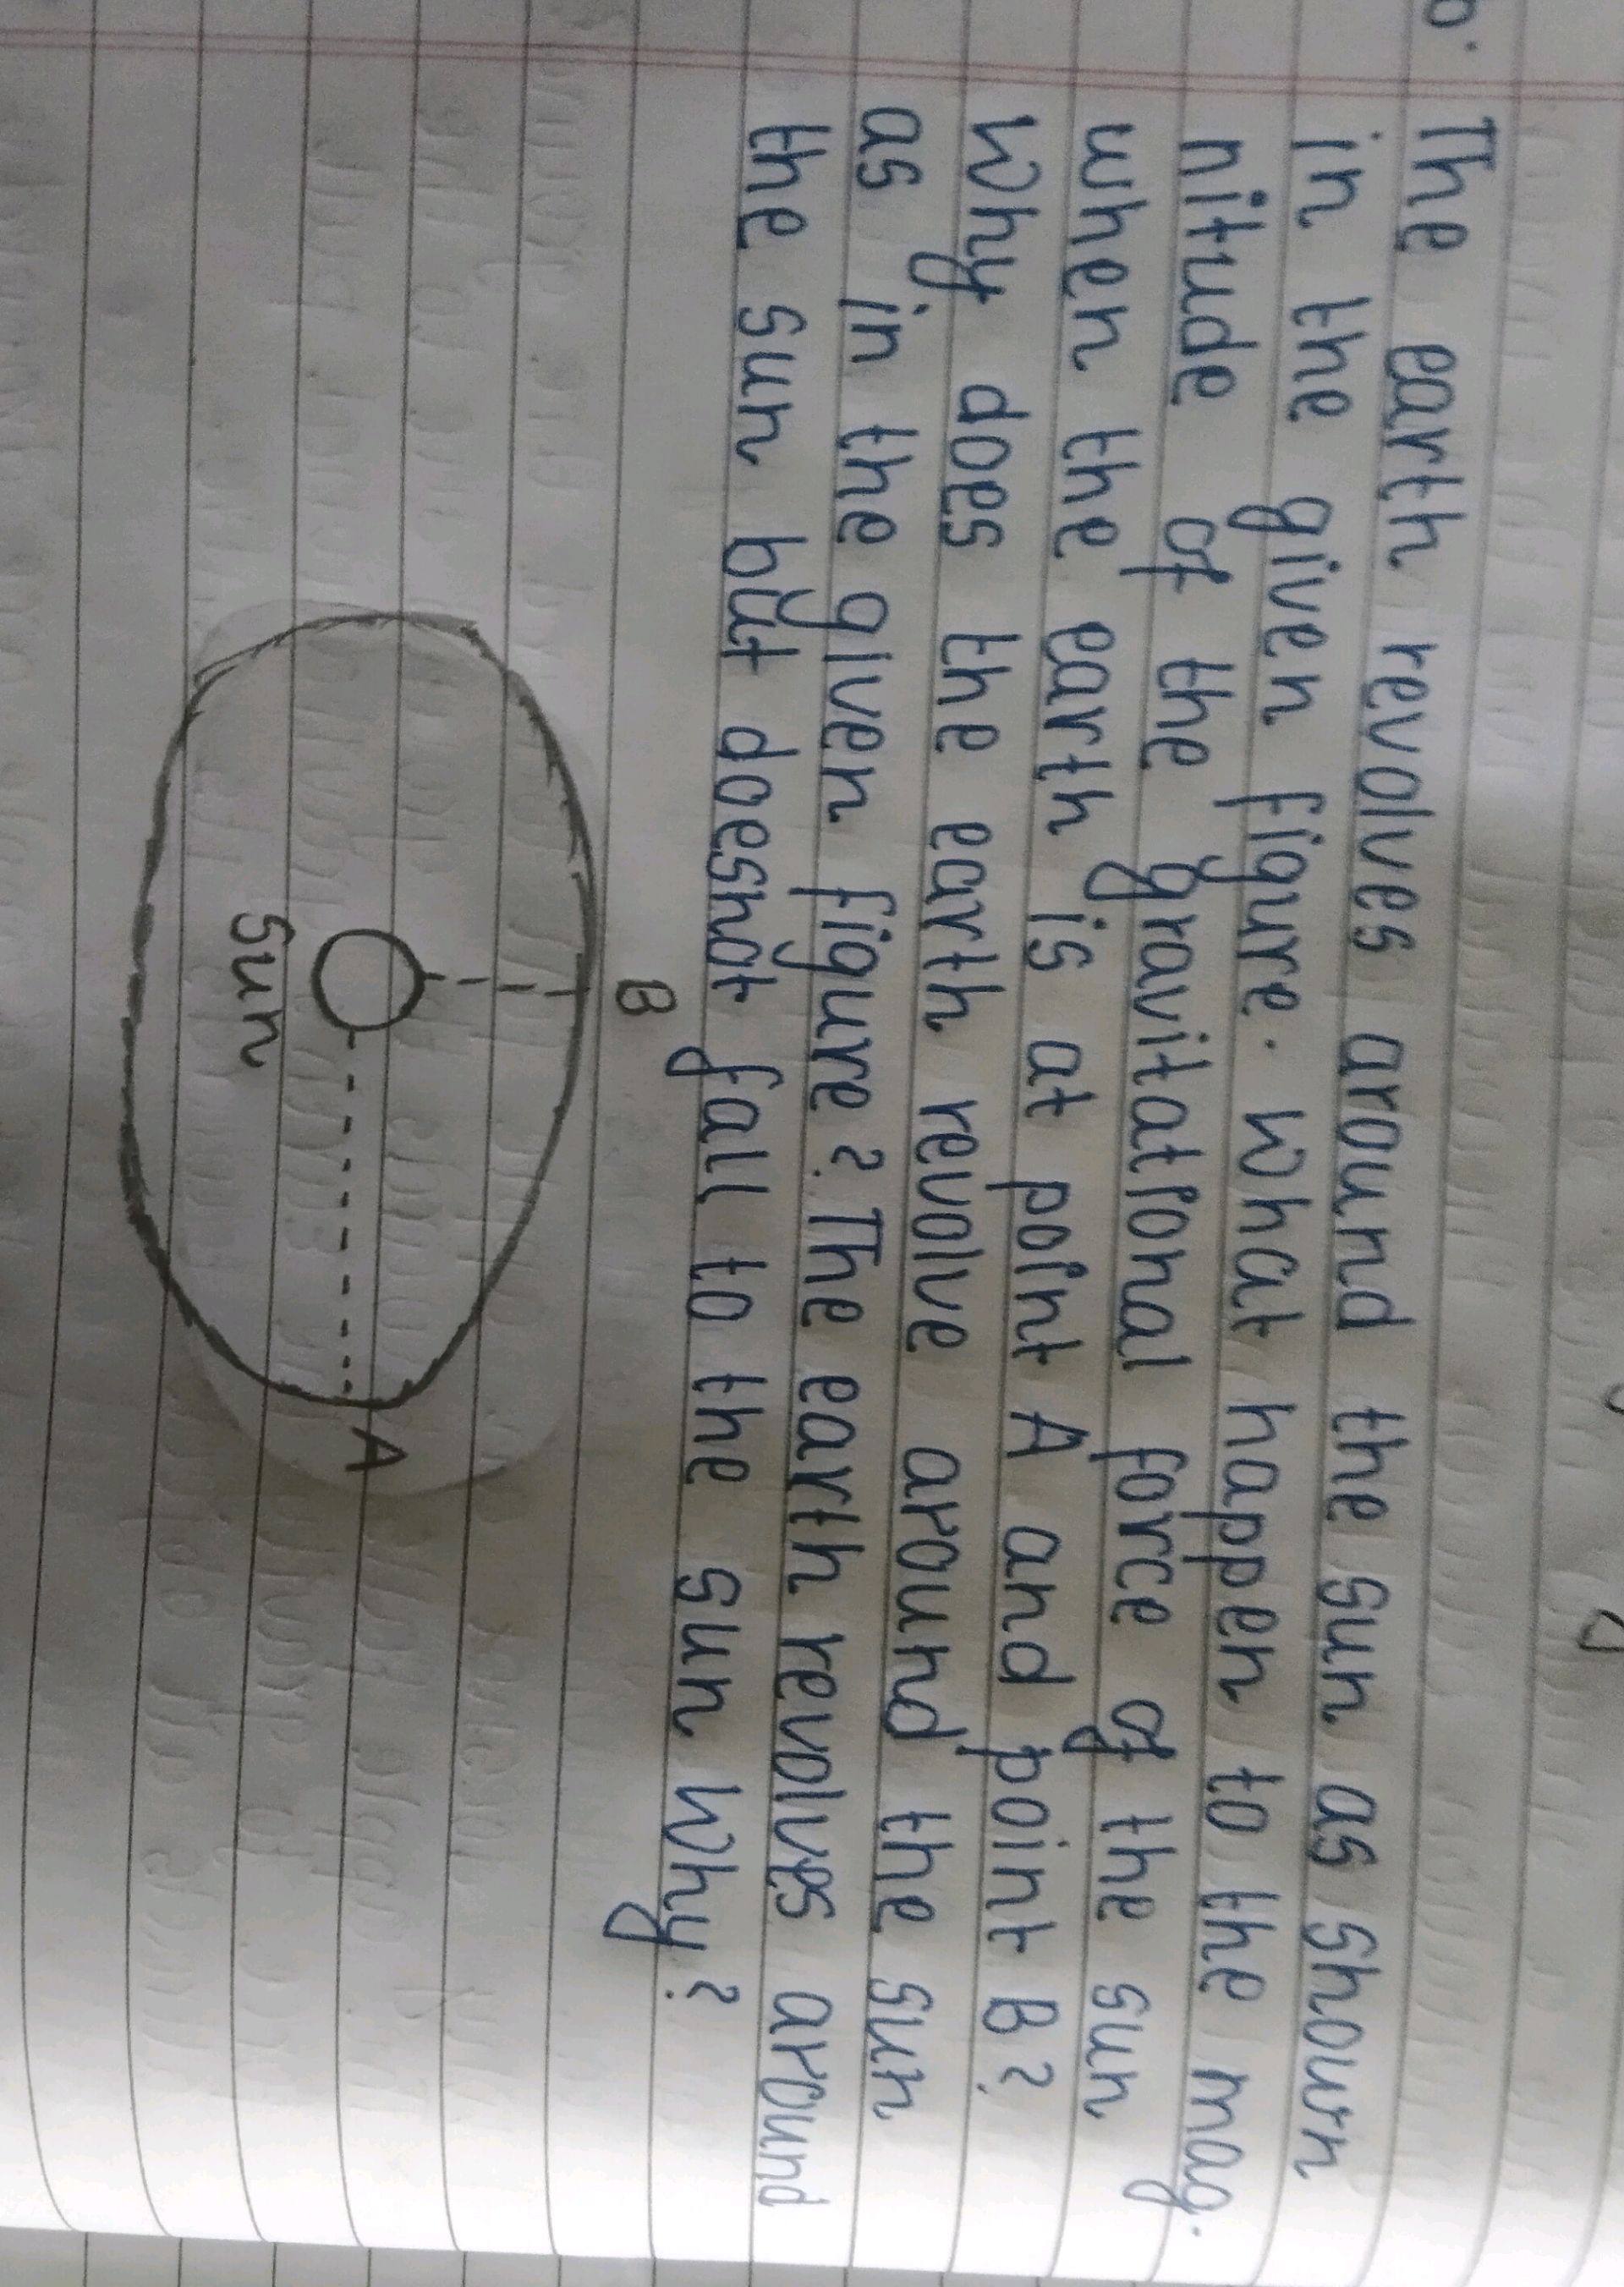 The earth revolves around the sun as shown
in the given figure. What happen to the mag.
nitude of the gravitational force of the sun
when the earth is at point A and point B?
Why does the earth revolve around the sun
as in the given figure? The earth revolves around
the sun but doesnot fall to the sun why?
B
Sun
A